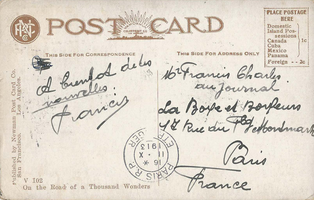 POST CARD
PLACE POSTAGE
HERE
Domestic
Island Pos-
sessions
Canada
Cuba
Mexico
Panama
1c
Foreign - 2c
THIS SIDE FOR CORRESPONDENCE
THIS SIDE FOR ADDRESS ONLY
A bientôt de tes
nouvelles
Francis
Mr Francis Charles
au journal
La Boxe et Boxeurs
Rue du
Paris
France
PARIS R.P.
ETRANGER
16 *
11 - X
1913
Published by Newman Post Card Co.
San Francisco. Los Angeles.
V 102
On the Road of a Thousand Wonders